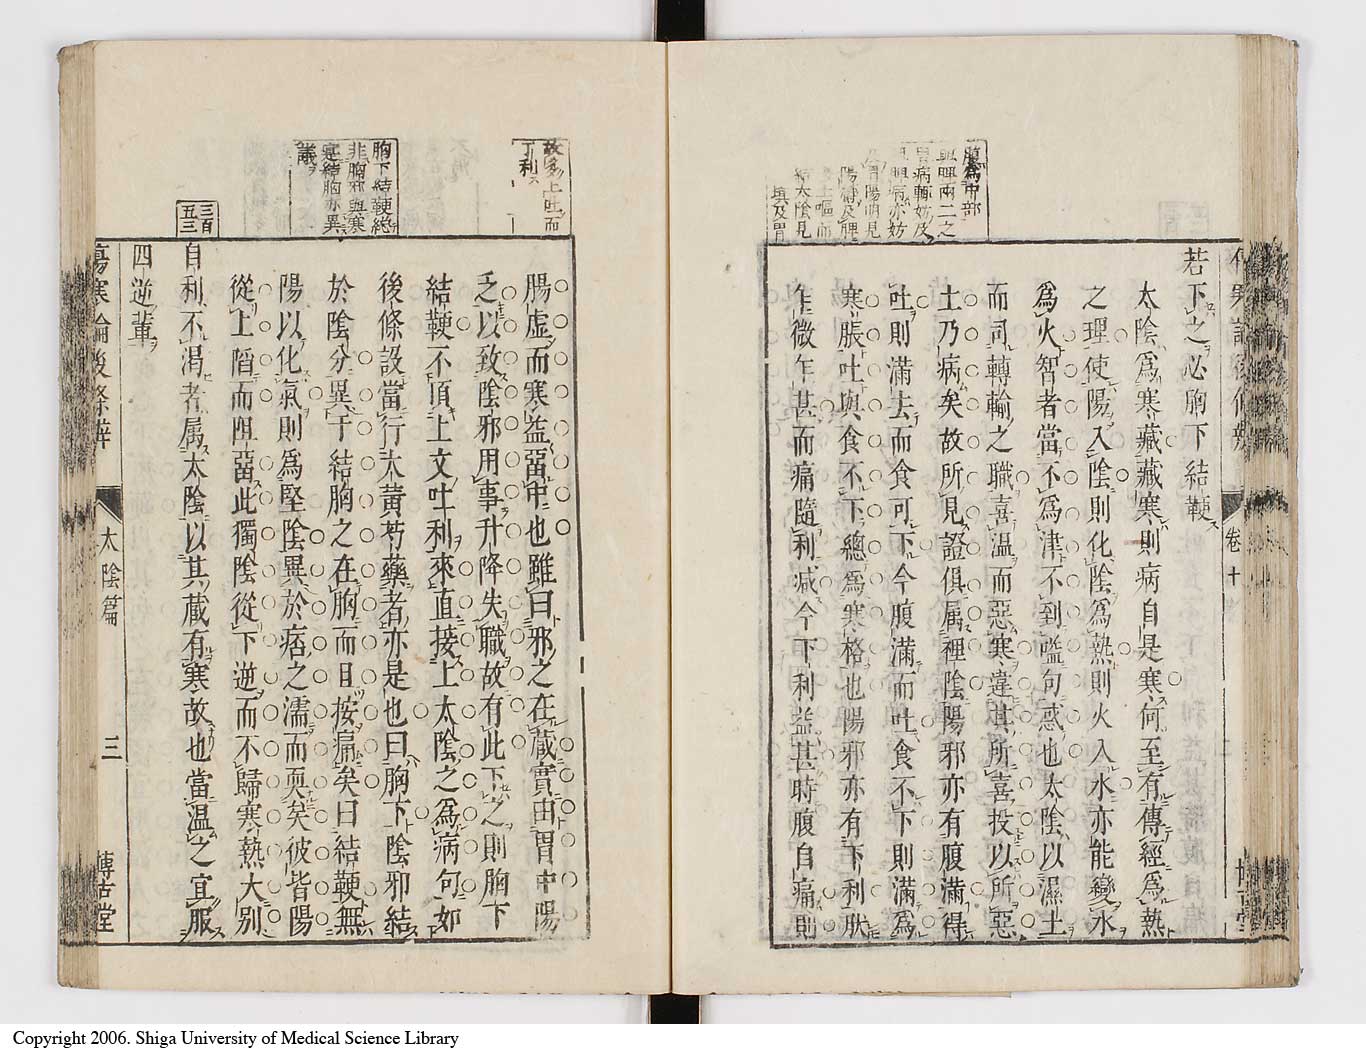 腹為中部
若下之必胸下結鞕
太陰為寒藏藏寒則病自是寒何至有傳經為熱
之理使陽入陰則化陰為熱則火入水亦能變水
為火智者當不為津不到嗌句惑也太陰以濕土
而司轉輸之職喜温而惡寒違其所喜投以所惡
土乃病矣故所見證俱属裡陰陽邪亦有腹滿得
吐則滿去而食可下今腹滿而吐食不下則滿為
寒脹吐與食不下總為寒格也陽邪亦有下利肰
乍微乍甚而痛隨利減今下利益甚時腹自痛則
卷十
故多上吐而
下利
胸下結鞕絶
非胸邪與寒
寔結胸亦異
議
三百
五三
腸虚而寒益畱中也雖曰邪之在蔵實由胃中陽
乏以致陰邪用事升降失職故有此下之則胸下
結鞕不頂上文吐利來直接上太陰之為病句如
後條設當行大黄芍藥者亦是也曰胸下陰邪結
於陰分異于結胸之在胸而且按痛矣曰結鞕無
陽以化氣則為堅陰異於痞之濡而耎矣彼皆陽
從上䧟而阻畱此獨陰從下逆而不歸寒熱大别
自利不渴者属太陰以其蔵有寒故也當温之宜服
四逆輩
傷寒論後條辨
太陰篇
三
博古堂
Copyright 2006. Shiga University of Medical Science Library